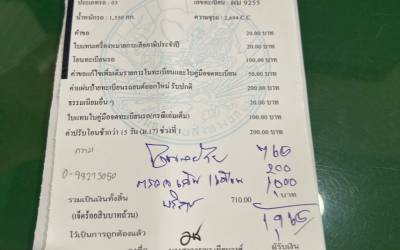 ประเภทรถ : 03 เลขทะเบียน : 9255
น้ำหนักรถ : 1,550 กก. ความจุรถ : 2,694 C.C.
ค่าขอ 20.00 บาท
ใบแทนเครื่องหมายการเสียภาษีประจำปี 20.00 บาท
โอนทะเบียนรถ 100.00 บาท
ค่าขอแก้ไขเพิ่มเติมรายการในทะเบียนและใบคู่มือจดทะเบียน 50.00 บาท
ค่าแผ่นป้ายทะเบียนรถยนต์ออกใหม่ รับปกติ 200.00 บาท
ธรรมเนียมอื่น ๆ 20.00 บาท
ใบแทนใบคู่มือจดทะเบียนรถ(กรณีเล่มเต็ม) 100.00 บาท
ค่าปรับโอนช้ากว่า 15 วัน (ม.17) ช่วงที่ 1 200.00 บาท
760
200
1000
รวมเป็นเงินทั้งสิ้น 710.00 บาท
(เจ็ดร้อยสิบบาทถ้วน)
ไว้เป็นการถูกต้องแล้ว
ผู้รับเงิน